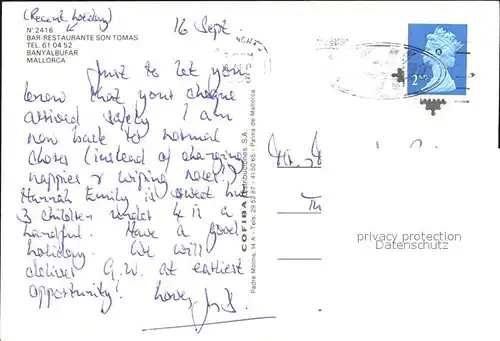 (Recent holiday)
16 Sept.
N° 2416
BAR-RESTAURANTE SON TOMAS
TEL. 61 04 52
BANYALBUFAR
MALLORCA
Just to let you
know that your cheque
arrived safely. I am
now back to normal
chores (instead of changing
nappies & wiping noses!)
Hannah Emily is sweet but
3 children under 4 is a
handful. Have a good
holiday. We will
deliver G.W. at earliest
opportunity!
Love,
COFIBA Distribuciones, S.A.
Padre Molina, 14 A - Tels. 29 52 87 - 41 50 65 - Palma de Mallorca.
2ND
privacy protection
Datenschutz